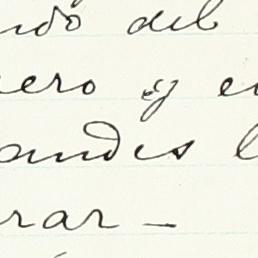 ndo del
ero y e
andes l
rar —